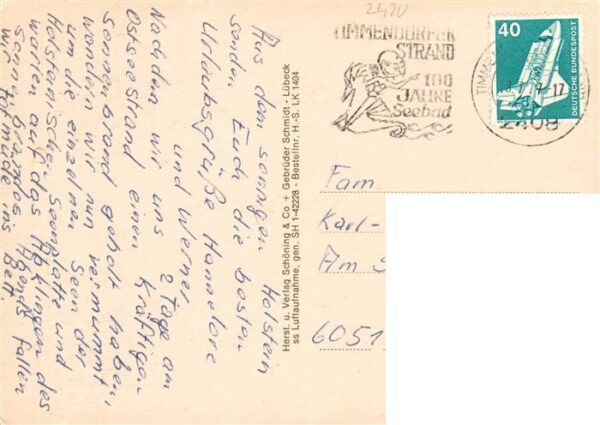 Aus dem sonnigen Holstein
senden Euch die besten
Urlaubsgrüße Hannelore
und Werner.
Nachdem wir uns 2 Tage am
Ostseestrand einen kräftigen
Sonnenbrand geholt haben,
wandern wir nun vermummt
um die einzelnen Seen der
Holsteinischen Seenplatte und
warten auf das Abklingen des
Sonnenbrandes. Abends fallen
wir todmüde ins Bett.
Herst. u. Verlag Schöning & Co + Gebrüder Schmidt - Lübeck
ss Luftaufnahme, gen. SH 1-42228 - Bestellnr. H.-S. LK 1404
2420
TIMMENDORFER
STRAND
100
JAHRE
Seebad
40
DEUTSCHE BUNDESPOST
TIMME
2408
Fam
Karl-
Am S
6051